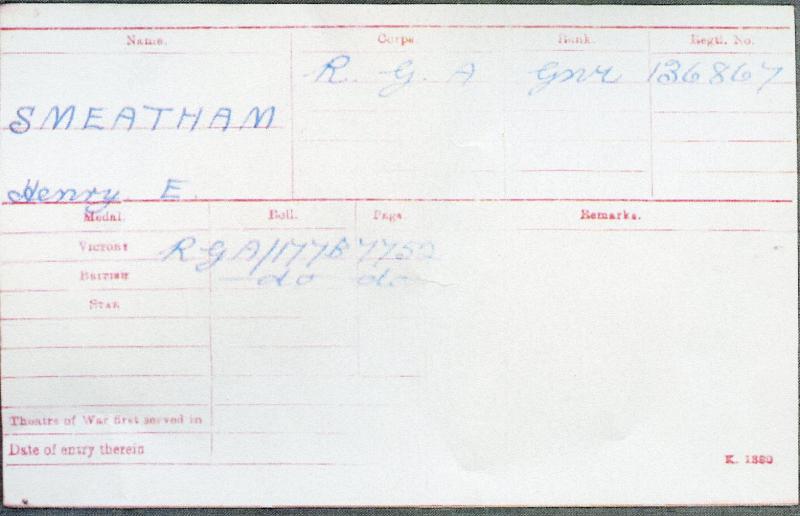 Name. Corps. Rank. Regtl. No.
R. G. A Gnr 136867
SMEATHAM
Henry. E.
Medal. Roll. Page. Remarks.
VICTORY RGA/177B 7752
BRITISH —do do
STAR
Theatre of War first served in
Date of entry therein
K. 1380